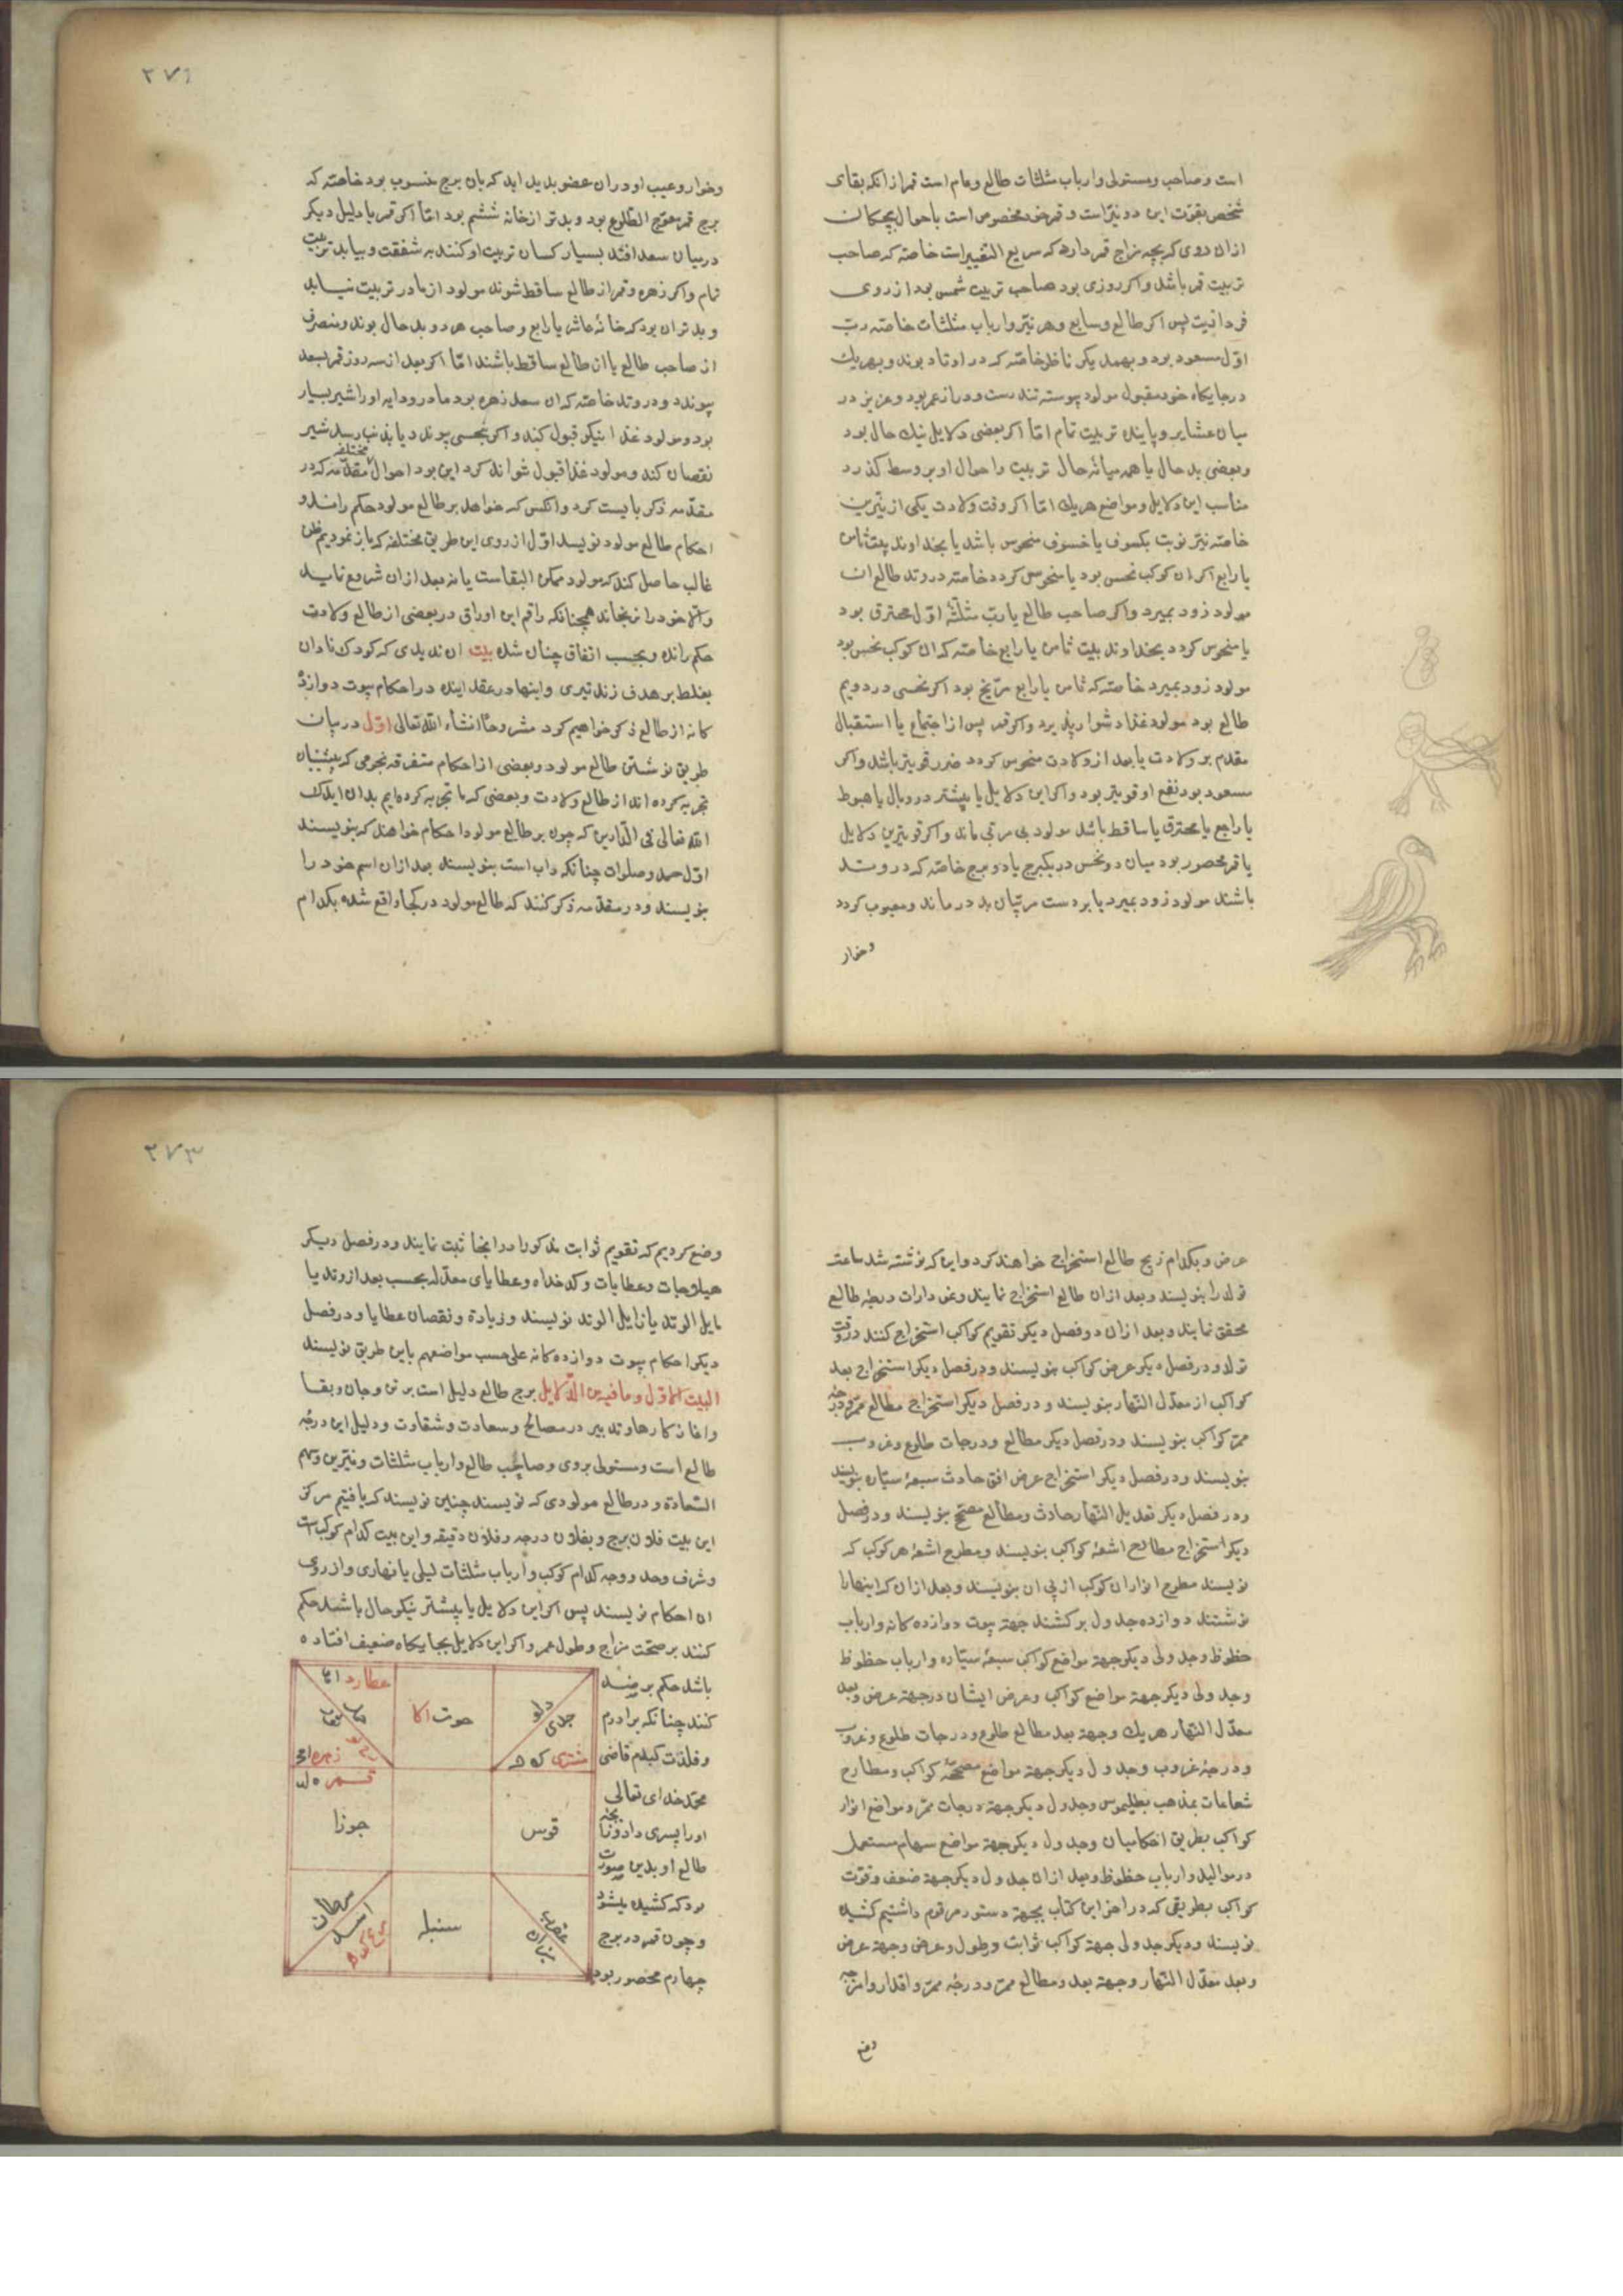 است و صاحب و مستولی و ارباب مثلثات طالع و امام است قمر از انکه بقای
شخص بقوت این دو نیّر است و قمر خود مخصوص است باحوال بچکان
از ان روی که بچه مزاج قمر دارد که سریع التغییر است خاصّه که صاحب
تربیت قمر باشد و اکر روزی بود صاحب تربیت شمس بود از روی
فردانیت پس اکر طالع و سابع و هر نیّر و ارباب مثلثات خاصّه ربّ
اوّل مسعود بود و بهمدیکر ناظر خاصّه که در اوتاد بوند و بهریک
در جایکاه خود مقبول مولود پیوسته تندرست و دراز عمر بود و عزیز در
میان عشایر و پاینده تربیت تمام امّا اکر بعضی دلایل نیک حال بود
و بعضی بد حال یا همه میانه حال تربیت و احوال او بر وسط کذرد
مناسب این دلایل و مواضع هریک امّا اکر وقت ولادت یکی از نیّرین
خاصّه نیّر نوبت بکسوف یا خسوف منحوس باشد یا بخداوند بیت ثامن
یا رابع اکر ان کوکب نحس بود یا منحوس کردد خاصّه در وتد طالع ان
مولود زود بمیرد و اکر صاحب طالع یا ربّ مثلّثه اوّل محترق بود
یا منحوس کردد بخداوند بیت ثامن یا رابع خاصّه که ان کوکب نحس بود
مولود زود بمیرد خاصّه که ثامن یا رابع مرّیخ بود اکر نحسی در دویم
طالع بود مولود غذا دشوار پذیرد و اکر قمر پس از اجتماع یا استقبال
مقدم بر ولادت یا بعد از ولادت منحوس کردد ضرر قویتر باشد و اکر
مسعود بود نفع او قویتر بود و اکر این دلایل یا بیشتر در وبال یا هبوط
یا راجع یا محترق یا ساقط باشد مولود بی مربّی ماند و اکر قویترین دلایل
یا قمر محصور بود میان دو نحس در یکبرج یا دو برج خاصّه که در وتد
باشند مولود زود بمیرد یا بر دست مربّیان بد در ماند و معیوب کردد
و خوار
۲۷۱
و خوار و عیب او در ان عضو بدید اید که بان برج منسوب بود خاصّه که
برج قمر معوّج الطلوع بود و بدتر از خانه ششم بود امّا اکر قمر یا دلیل دیکر
در میان سعد افتد بسیار کسان تربیت او کنند به شفقت و بیابد تربیت
تمام و اکر زهره و قمر از طالع ساقط شوند مولود از مادر تربیت نیابد
و بدتر ان بود که خانه عاشر یا رابع و صاحب هر دو بد حال بوند و منصرف
از صاحب طالع یا از طالع ساقط باشند امّا اکر بعد از سه روز قمر بسعد
پیوندد و در وتد خاصّه که ان سعد زهره بود مادر و دایه او را شیر بسیار
بود و مولود غذا نیکو قبول کند و اکر بنحسی پیوندد یا بذنب رسد شیر
نقصان کند و مولود غذا قبول نتواند کرد این بود احوال مختلفه مقدّمه که در
مقدّمه ذکر بایست کرد و انکس که خواهد بر طالع مولود حکم راند و
احکام طالع مولود نویسد اوّل از روی این طریق مختلفه که باز نمودیم ظن
غالب حاصل کند که مولود ممکن البقاست یا نه بعد از ان شروع نماید
و الّا خود را نرنجاند همچنانکه راقم این اوراق در بعضی از طالع ولادت
حکم رانده و بحسب اتفاق چنان شده بیت ان ندیدی که کودک نادان
بغلط بر هدف زند تیری و اینها در عقد اینده در احکام بیوت دوازده
کانه از طالع ذکر خواهیم کرد مشروحًا انشاء الله تعالی اوّل در بیان
طریق نوشتن طالع مولود و بعضی از احکام متفرقه نجومی که پیشینیان
تجربه کرده اند از طالع ولادت و بعضی که ما تجربه کرده ایم بدان ایدک
الله تعالی فی الدّارین که چون بر طالع مولود احکام خواهند که بنویسند
اوّل حمد و صلوات چنانکه داب است بنویسند بعد از ان اسم خود را
بنویسند و در مقدّمه ذکر کنند که طالع مولود در کجا واقع شده بکدام
عرض و بکدام زیج طالع استخراج خواهند کرد و این که نوشته شد ساعت
تولد را بنویسند و بعد از ان طالع استخراج نمایند و نمودارات در بطه طالع
محقق نمایند و بعد از ان در فصل دیکر تقویم کواکب استخراج کنند در وقت
تولد و در فصل دیکر عرض کواکب بنویسند و در فصل دیکر استخراج بعد
کواکب از معدّل النهار بنویسند و در فصل دیکر استخراج مطالع ممرّ و درجه
ممرّ کواکب بنویسند و در فصل دیکر مطالع و درجات طلوع و غروب
بنویسند و در فصل دیکر استخراج عرض افق حادث سبعهٔ سیّاره بنویسند
و در فصل دیکر تعدیل النهار حادث و مطالع مصحّح بنویسند و در فصل
دیکر استخراج مطالع اشعهٔ کواکب بنویسند و مطرح اشعهٔ هر کوکب که
نویسند مطرح انوار ان کوکب از پی ان بنویسند و بعد از ان که اینها را
نوشتند دوازده جدول برکشند جهة بیوت دوازده کانه و ارباب
حظوظ و جدولی دیکر جهة مواضع کواکب سبعهٔ سیّاره و ارباب حظوظ
و جدولی دیکر جهة مواضع کواکب و عرض ایشان در جهة عرض و بعد
معدّل النهار هریک و جهة بعد مطالع طلوع و درجات طلوع و غروب
و درجهٔ غروب و جدول دیکر جهة مواضع مصحّحهٔ کواکب و مطارح
شعاعات بمذهب بطلیموس و جدول دیکر جهة درجات ممرّ و مواضع انوار
کواکب بطریق احکامیان و جدول دیکر جهة مواضع سهام مستعمل
در موالید و ارباب حظوظ و بعد از ان جدول دیکر جهة ضعف و قوّت
کواکب بطریقی که در اخر این کتاب بجهة دستور مرقوم داشتیم کشیده
نویسند و دیکر جدولی جهة کواکب ثوابت و بطول و عرض و جهة عرض
و بعد معدّل النهار و جهة بعد و مطالع ممرّ و درجهٔ ممرّ و اقدار و امزجه
وضع
۲۷۳
وضع کردیم که تقویم ثوابت مذکور را در انجا ثبت نمایند و در فصل دیکر
هیلاجات و عطایات و کدخداه و عطایای معدّله بحسب بعد از وتد یا
مایل الوتد یا زایل الوتد نویسند و زیادة و نقصان عطایا و در فصل
دیکر احکام بیوت دوازده کانه علی حسب مواضعهم باین طریق نویسند
البیت الاوّل و ما فیه من الدّلایل برج طالع دلیل است بر تن و جان و بقا
و اغاز کارها و تدبیر در مصالح و سعادت و شقاوت و دلیل این درجهٔ
طالع است و مستولی بر وی و صاحب طالع و ارباب مثلثات و نیّرین و سهم
السّعادة و در طالع مولودی که نویسند چنین نویسند که یافتیم مرکز
این بیت فلان برج و بفلان درجه و فلان دقیقه و این بیت کدام کوکب است
و شرف و حد و وجه کدام کوکب و ارباب مثلثات لیلی یا نهاری و از روی
ان احکام نویسند پس اکر این دلایل یا بیشتر نیکو حال باشند حکم
کنند بر صحّت مزاج و طول عمر و اکر این دلایل بجایکاه ضعیف افتاده
باشد حکم بر ضد
کنند چنانکه برادرم
و فلذت کبدم قاضی
محمّد خدای تعالی
او را پسری داد و
طالع او بدین صورت
بود که کشیده میشود
و چون قمر در برج
چهارم محصور بود
عطارد
زهره
حوت
دلو
جدی
مشتری
قمر
جوزا
قوس
سرطان
اسد
سنبله
عقرب
میزان